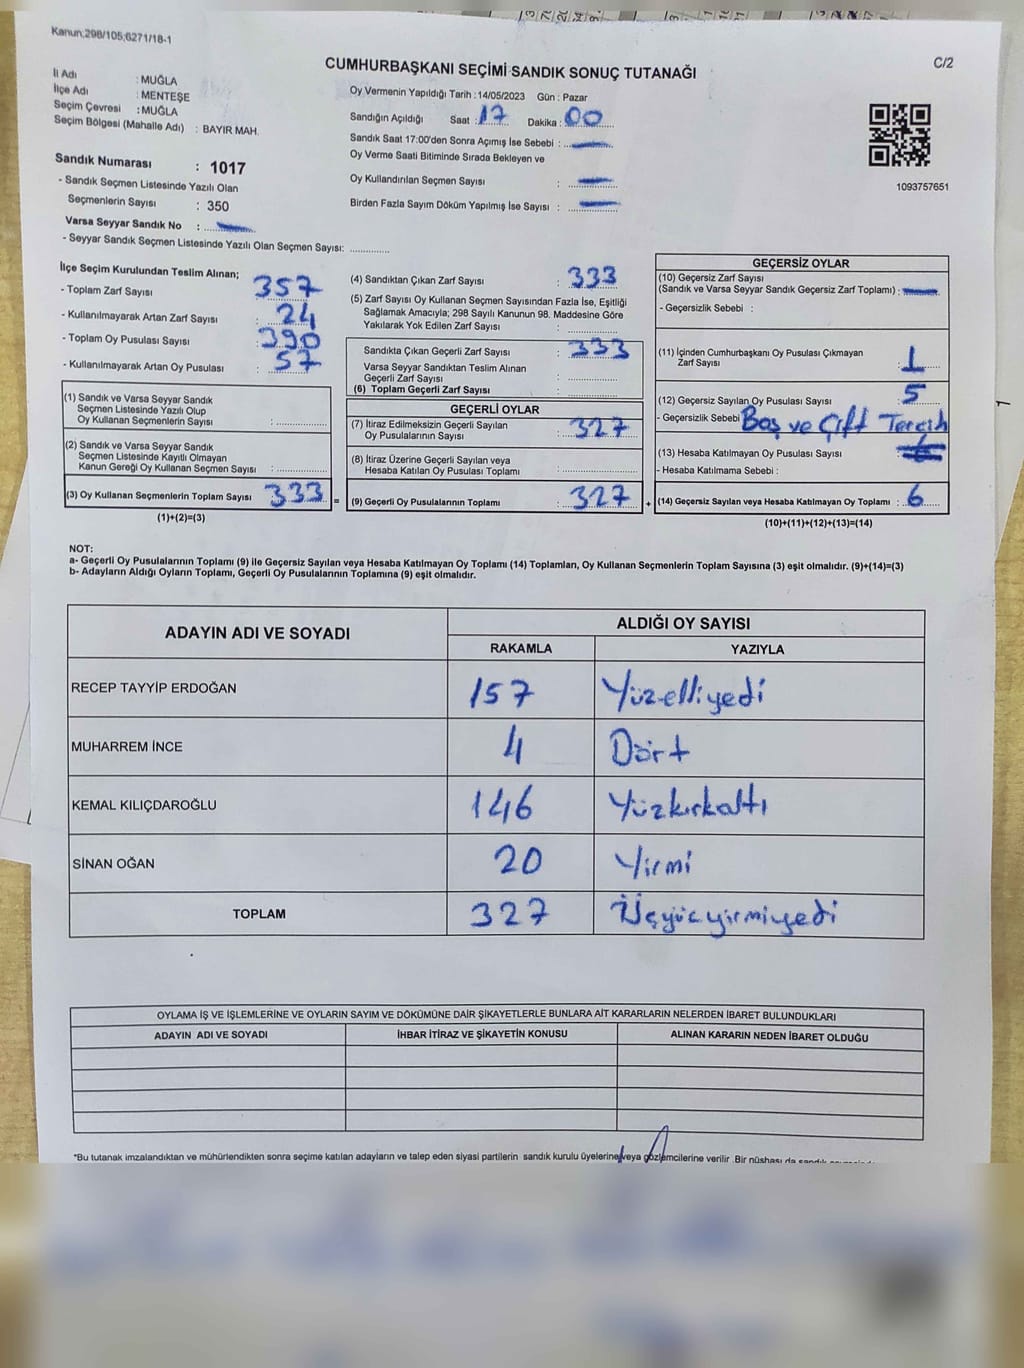 Kanun;298/105;6271/18-1
C/2
CUMHURBAŞKANI SEÇİMİ SANDIK SONUÇ TUTANAĞI
İl Adı : MUĞLA
İlçe Adı : MENTEŞE
Seçim Çevresi : MUĞLA
Seçim Bölgesi (Mahalle Adı) : BAYIR MAH.
Oy Vermenin Yapıldığı Tarih : 14/05/2023 Gün : Pazar
Sandığın Açıldığı Saat : 17 Dakika : 00
Sandık Saat 17:00'den Sonra Açımış İse Sebebi :
Oy Verme Saati Bitiminde Sırada Bekleyen ve
Oy Kullandırılan Seçmen Sayısı :
Birden Fazla Sayım Döküm Yapılmış İse Sayısı :
1093757651
Sandık Numarası : 1017
- Sandık Seçmen Listesinde Yazılı Olan
Seçmenlerin Sayısı : 350
Varsa Seyyar Sandık No :
- Seyyar Sandık Seçmen Listesinde Yazılı Olan Seçmen Sayısı:
İlçe Seçim Kurulundan Teslim Alınan;
- Toplam Zarf Sayısı : 357
- Kullanılmayarak Artan Zarf Sayısı : 24
- Toplam Oy Pusulası Sayısı : 390
- Kullanılmayarak Artan Oy Pusulası : 57
(1) Sandık ve Varsa Seyyar Sandık
Seçmen Listesinde Yazılı Olup
Oy Kullanan Seçmenlerin Sayısı :
(2) Sandık ve Varsa Seyyar Sandık
Seçmen Listesinde Kayıtlı Olmayan
Kanun Gereği Oy Kullanan Seçmen Sayısı :
(3) Oy Kullanan Seçmenlerin Toplam Sayısı 333 =
(1)+(2)=(3)
(4) Sandıktan Çıkan Zarf Sayısı : 333
(5) Zarf Sayısı Oy Kullanan Seçmen Sayısından Fazla İse, Eşitliği
Sağlamak Amacıyla; 298 Sayılı Kanunun 98. Maddesine Göre
Yakılarak Yok Edilen Zarf Sayısı :
Sandıkta Çıkan Geçerli Zarf Sayısı : 333
Varsa Seyyar Sandıktan Teslim Alınan
Geçerli Zarf Sayısı :
(6) Toplam Geçerli Zarf Sayısı :
GEÇERLİ OYLAR
(7) İtiraz Edilmeksizin Geçerli Sayılan
Oy Pusulalarının Sayısı : 327
(8) İtiraz Üzerine Geçerli Sayılan veya
Hesaba Katılan Oy Pusulası Toplamı :
(9) Geçerli Oy Pusulalarının Toplamı : 327 +
GEÇERSİZ OYLAR
(10) Geçersiz Zarf Sayısı
(Sandık ve Varsa Seyyar Sandık Geçersiz Zarf Toplamı) :
- Geçersizlik Sebebi :
(11) İçinden Cumhurbaşkanı Oy Pusulası Çıkmayan
Zarf Sayısı : 1
(12) Geçersiz Sayılan Oy Pusulası Sayısı : 5
- Geçersizlik Sebebi Boş ve Çift Tercih
(13) Hesaba Katılmayan Oy Pusulası Sayısı
- Hesaba Katılmama Sebebi :
(14) Geçersiz Sayılan veya Hesaba Katılmayan Oy Toplamı : 6
(10)+(11)+(12)+(13)=(14)
NOT:
a- Geçerli Oy Pusulalarının Toplamı (9) ile Geçersiz Sayılan veya Hesaba Katılmayan Oy Toplamı (14) Toplamları, Oy Kullanan Seçmenlerin Toplam Sayısına (3) eşit olmalıdır. (9)+(14)=(3)
b- Adayların Aldığı Oyların Toplamı, Geçerli Oy Pusulalarının Toplamına (9) eşit olmalıdır.
ADAYIN ADI VE SOYADI
ALDIĞI OY SAYISI
RAKAMLA YAZIYLA
RECEP TAYYİP ERDOĞAN 157 Yüzelliyedi
MUHARREM İNCE 4 Dört
KEMAL KILIÇDAROĞLU 146 Yüzkırkaltı
SİNAN OĞAN 20 Yirmi
TOPLAM 327 Üçyüzyirmiyedi
OYLAMA İŞ VE İŞLEMLERİNE VE OYLARIN SAYIM VE DÖKÜMÜNE DAİR ŞİKAYETLERLE BUNLARA AİT KARARLARIN NELERDEN İBARET BULUNDUKLARI
ADAYIN ADI VE SOYADI İHBAR İTİRAZ VE ŞİKAYETİN KONUSU ALINAN KARARIN NEDEN İBARET OLDUĞU
*Bu tutanak imzalandıktan ve mühürlendikten sonra seçime katılan adayların ve talep eden siyasi partilerin sandık kurulu üyelerine veya gözlemcilerine verilir .Bir nüshası da